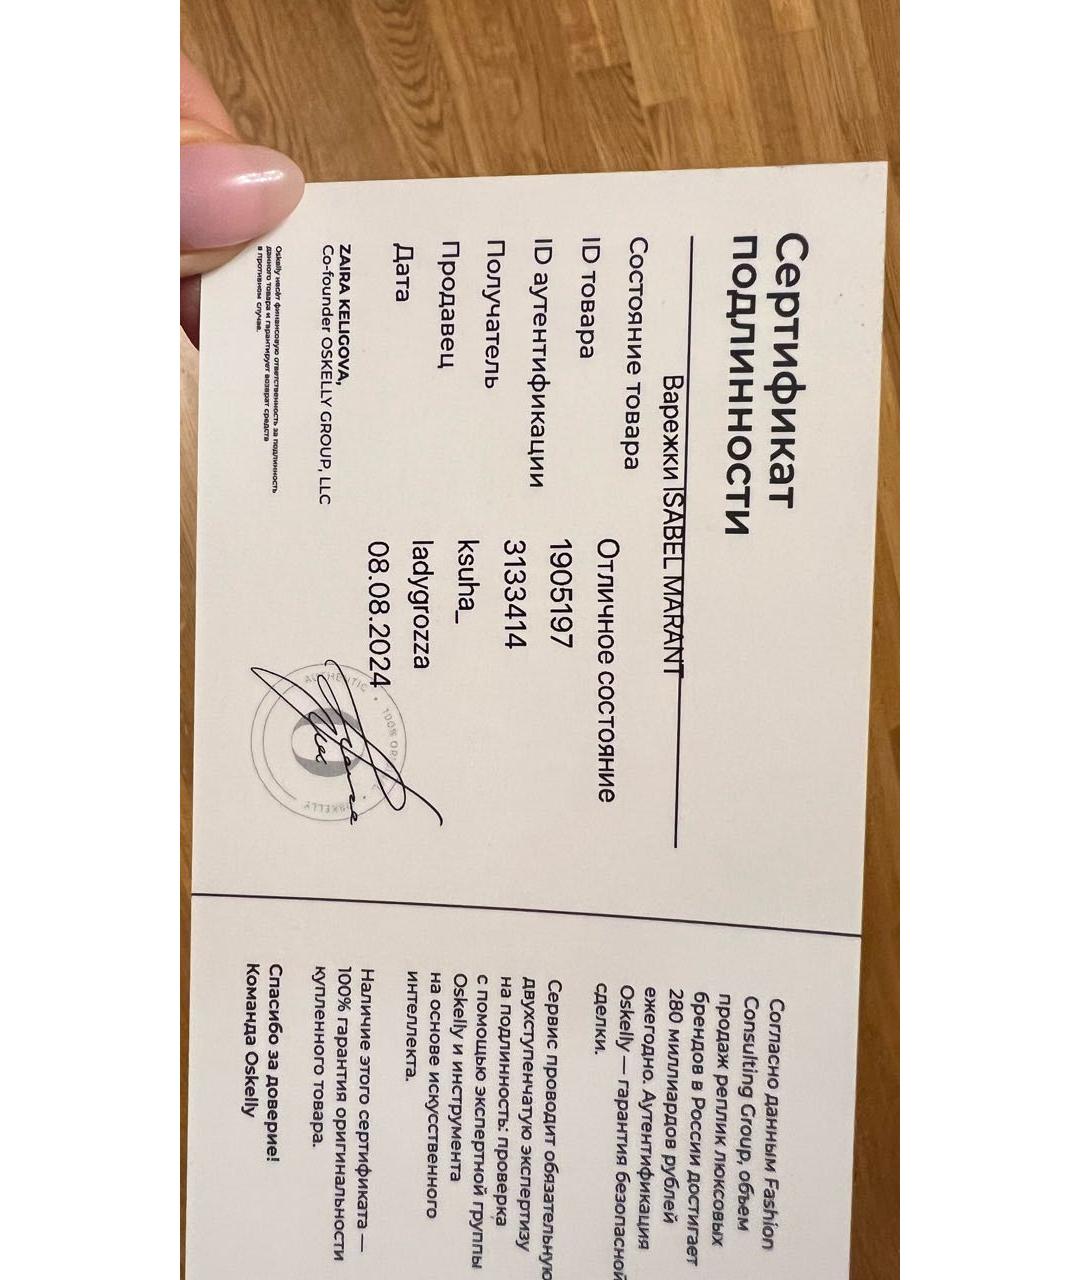 Сертификат
подлинности
Варежки ISABEL MARANT
Состояние товара Отличное состояние
ID товара 1905197
ID аутентификации 3133414
Получатель ksuha_
Продавец ladygrozza
Дата 08.08.2024
ZAIRA KELIGOVA,
Co-founder OSKELLY GROUP, LLC
Oskelly несёт финансовую ответственность за подлинность
данного товара и гарантирует возврат средств
в противном случае.
AUTHENTIC • 100%
OSKELLY
Согласно данным Fashion
Consulting Group, объем
продаж реплик люксовых
брендов в России достигает
280 миллиардов рублей
ежегодно. Аутентификация
Oskelly — гарантия безопасной
сделки.
Сервис проводит обязательную
двухступенчатую экспертизу
на подлинность: проверка
с помощью экспертной группы
Oskelly и инструмента
на основе искусственного
интеллекта.
Наличие этого сертификата —
100% гарантия оригинальности
купленного товара.
Спасибо за доверие!
Команда Oskelly